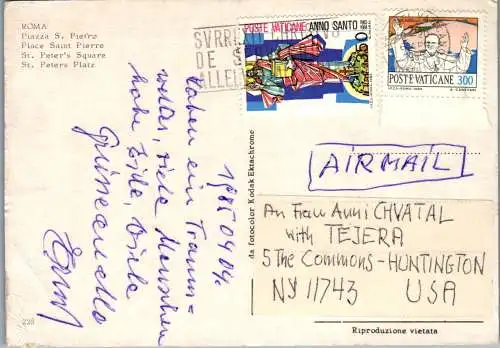 ROMA
Piazza S. Pietro
Place Saint Pierre
St. Peter's Square
St. Peters Platz
POSTE VATICANE ANNO SANTO
POSTE VATICANE 300
SVRR
DE S
ALLEL
1985 04 04.
haben ein Traum-
wetter, viele Menschen
hohe Erde, Viele
Grüsse an alle
Ernst
da fotocolor Kodak Ektachrome
AIRMAIL
An Frau Anni CHVATAL
with TEJERA
5 The Commons-HUNTINGTON
NY 11743 USA
Riproduzione vietata